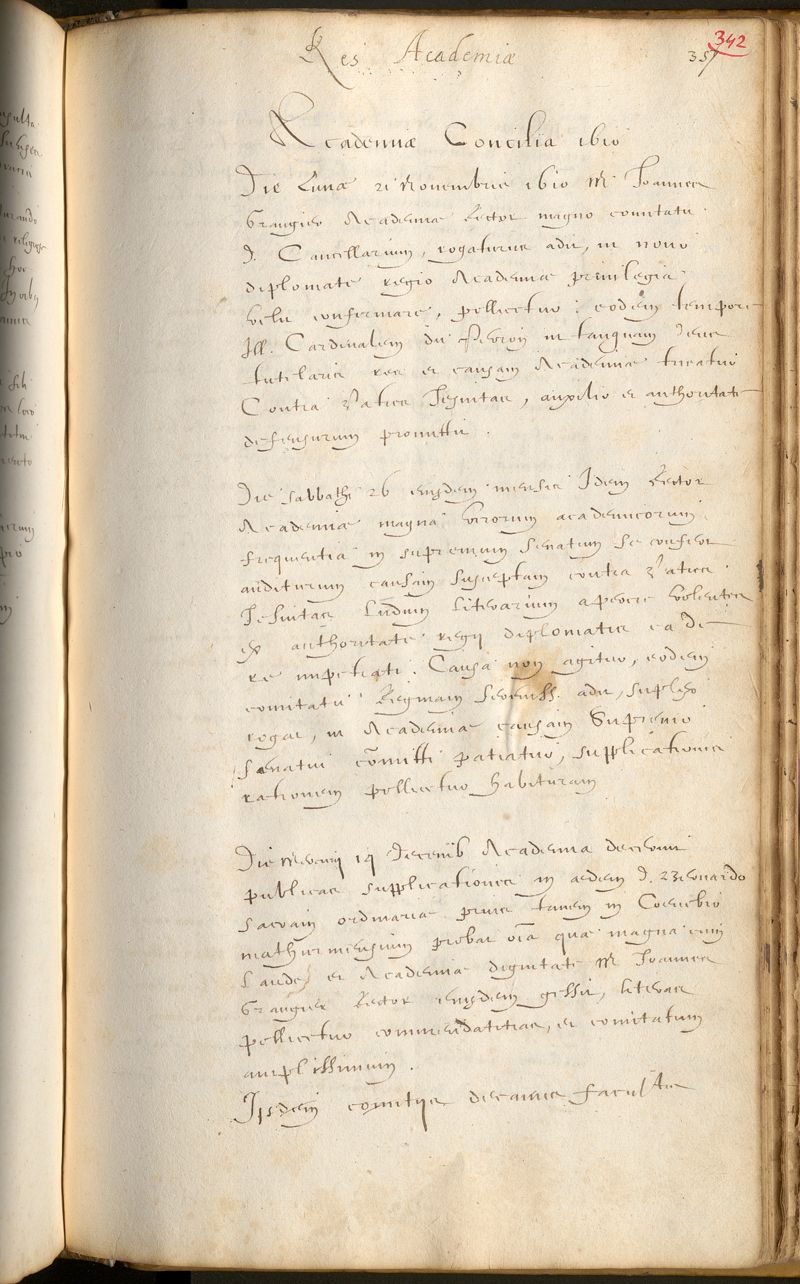 Res Academiæ
342
357
Academiæ Concilia 1610
Die Lunæ 21 Novembris 1610 M Joannes
Grangier Academiæ Rector magno comitatu
D. Cancellarium, rogaturus adit, ut novo
diplomate regio Academiæ privilegia
velit confirmare, pollicetur: eodem tempore
Ill. Cardinalem du Perron ut tanquam Deus
tutelaris res et causam Academiæ tueatur
Contra Patres Jesuitas, auxilio et authoritate
defensurum promittit.
Die sabbathi 26 eiusdem mensis Idem Rector
Academiæ magna virorum academicorum
frequentia in supremum senatum se confert
auditurum causam susceptam contra Patres
Jesuitas Ludum literarium aperire volentes
ex authoritate regii diplomatis ea de
re impetrati. Causa non agitur, eodem
comitatu Reginam sereniss. adit, suplex
rogat, ut Academiæ causam Supremo
senatui committi patiatur, supplicationis
rationem pollicetur habituram
Die Mercurij 14 Decemb Academia decrevit
publicas supplicationes in ædem D. Bernardo
sacram ordinariæ prius tamen in Coenobio
mathurinensium probat oīa quæ magna cum
Laude, et Academiæ dignitate M Joannes
Grangier Rector eiusdem gessit, literas
pollicetur commendatitias, et comitatum
amplissimum.
Iisdem comitijs decanus facultatis